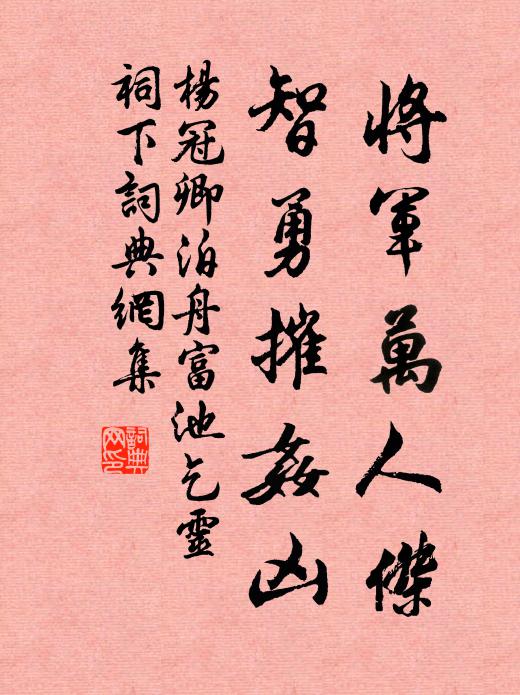 將軍萬人傑
智勇摧姦凶
楊冠卿泊舟富池乞靈
祠下詞典網集
詞典
网印